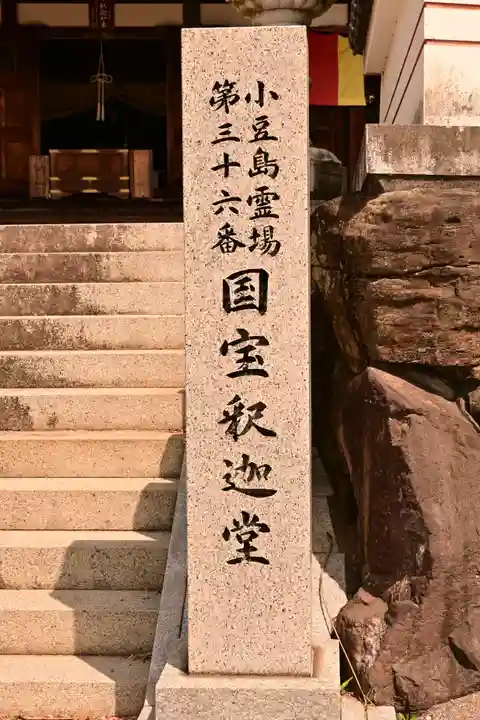 小豆島霊場
第三十六番
国宝釈迦堂